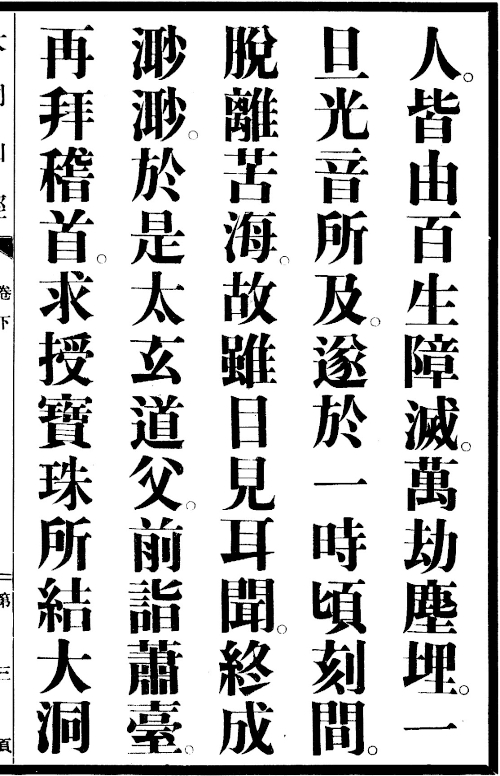 人。皆由百生障滅。萬劫塵埋。一
旦光音所及。遂於一時頃刻間。
脫離苦海。故雖目見耳聞。終成
渺渺。於是太玄道父。前詣蕭臺。
再拜稽首。求授寶珠所結大洞
卷下
第三頁